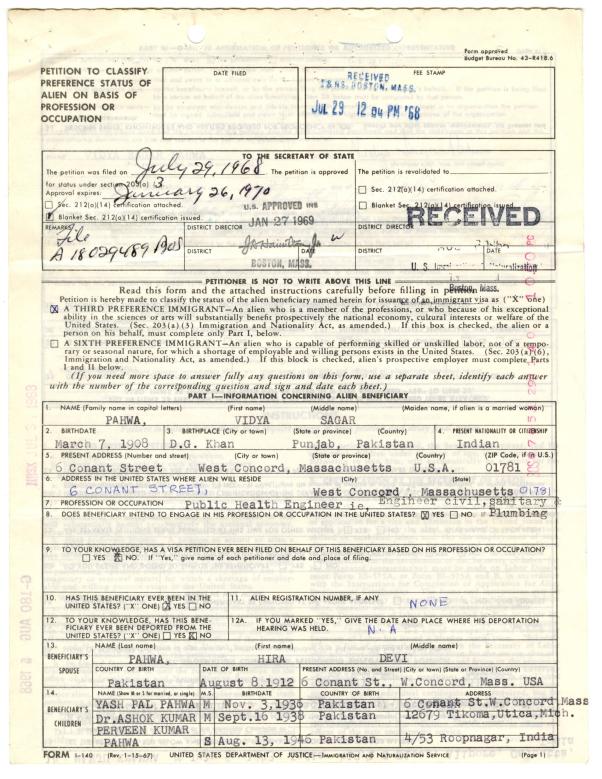 Form approved
Budget Bureau No. 43-R418.6
PETITION TO CLASSIFY
PREFERENCE STATUS OF
ALIEN ON BASIS OF
PROFESSION OR
OCCUPATION
DATE FILED
FEE STAMP
RECEIVED
I & NS, BOSTON, MASS.
JUL 29 12 04 PM '68
TO THE SECRETARY OF STATE
The petition was filed on July 29, 1968 The petition is approved
for status under section 203(a) 3
Approval expires: January 26, 1970
Sec. 212(a)(14) certification attached.
Blanket Sec. 212(a)(14) certification issued.
The petition is revalidated to
Sec. 212(a)(14) certification attached.
Blanket Sec. 212(a)(14) certification issued.
U.S. APPROVED INS
JAN 27 1969
BOSTON, MASS.
RECEIVED
REMARKS
File
A 18029489 Bos
DISTRICT DIRECTOR
DISTRICT
DISTRICT DIRECTOR
DISTRICT
DATE
Boston, Mass.
PETITIONER IS NOT TO WRITE ABOVE THIS LINE
Read this form and the attached instructions carefully before filling in petition
Petition is hereby made to classify the status of the alien beneficiary named herein for issuance of an immigrant visa as ("X" one)
X A THIRD PREFERENCE IMMIGRANT—An alien who is a member of the professions, or who because of his exceptional
ability in the sciences or arts will substantially benefit prospectively the national economy, cultural interests or welfare of the
United States. (Sec. 203(a)(3) Immigration and Nationality Act, as amended.) If this box is checked, the alien or a
person on his behalf, must complete only Part I, below.
A SIXTH PREFERENCE IMMIGRANT—An alien who is capable of performing skilled or unskilled labor, not of a tempo-
rary or seasonal nature, for which a shortage of employable and willing persons exists in the United States. (Sec. 203(a)(6),
Immigration and Nationality Act, as amended.) If this block is checked, alien's prospective employer must complete Parts
I and II below.
(If you need more space to answer fully any questions on this form, use a separate sheet, identify each answer
with the number of the corresponding question and sign and date each sheet.)
PART I—INFORMATION CONCERNING ALIEN BENEFICIARY
1. NAME (Family name in capital letters) (First name) (Middle name) (Maiden name, if alien is a married woman)
PAHWA, VIDYA SAGAR
2. BIRTHDATE 3. BIRTHPLACE (City or town) (State or province) (Country) 4. PRESENT NATIONALITY OR CITIZENSHIP
March 7, 1908 D.G. Khan Punjab, Pakistan Indian
5. PRESENT ADDRESS (Number and street) (City or town) (State or province) (Country) (ZIP Code, if in U.S.)
6 Conant Street West Concord, Massachusetts U.S.A. 01781
6. ADDRESS IN THE UNITED STATES WHERE ALIEN WILL RESIDE (City) (State)
6 CONANT STREET, West Concord, Massachusetts 01781
7. PROFESSION OR OCCUPATION Public Health Engineer ie, Engineer civil, sanitary &
8. DOES BENEFICIARY INTEND TO ENGAGE IN HIS PROFESSION OR OCCUPATION IN THE UNITED STATES? X YES NO Plumbing
9. TO YOUR KNOWLEDGE, HAS A VISA PETITION EVER BEEN FILED ON BEHALF OF THIS BENEFICIARY BASED ON HIS PROFESSION OR OCCUPATION?
YES X NO. If "Yes," give name of each petitioner and date and place of filing.
10. HAS THIS BENEFICIARY EVER BEEN IN THE
UNITED STATES? ("X" ONE) X YES NO
11. ALIEN REGISTRATION NUMBER, IF ANY
NONE
12. TO YOUR KNOWLEDGE, HAS THIS BENE-
FICIARY EVER BEEN DEPORTED FROM THE
UNITED STATES? ("X" ONE) YES X NO
12A. IF YOU MARKED "YES," GIVE THE DATE AND PLACE WHERE HIS DEPORTATION
HEARING WAS HELD. N.A
13. BENEFICIARY'S SPOUSE
NAME (Last name) (First name) (Middle name)
PAHWA, HIRA DEVI
COUNTRY OF BIRTH DATE OF BIRTH PRESENT ADDRESS (No. and Street) (City or town) (State or Province) (Country)
Pakistan August 8.1912 6 Conant St., W.Concord, Mass. USA
14. BENEFICIARY'S CHILDREN
NAME (Show M or S for married, or single) M.S. BIRTHDATE COUNTRY OF BIRTH ADDRESS
YASH PAL PAHWA M Nov. 3,1936 Pakistan 6 Conant St.W.Concord,Mass
Dr.ASHOK KUMAR M Sept.16 1938 Pakistan 12679 Tikoma,Utica,Mich.
PERVEEN KUMAR
PAHWA S Aug. 13, 1946 Pakistan 4/53 Roopnagar, India
FORM I-140 (Rev. 1-15-67) UNITED STATES DEPARTMENT OF JUSTICE—IMMIGRATION AND NATURALIZATION SERVICE (Page 1)